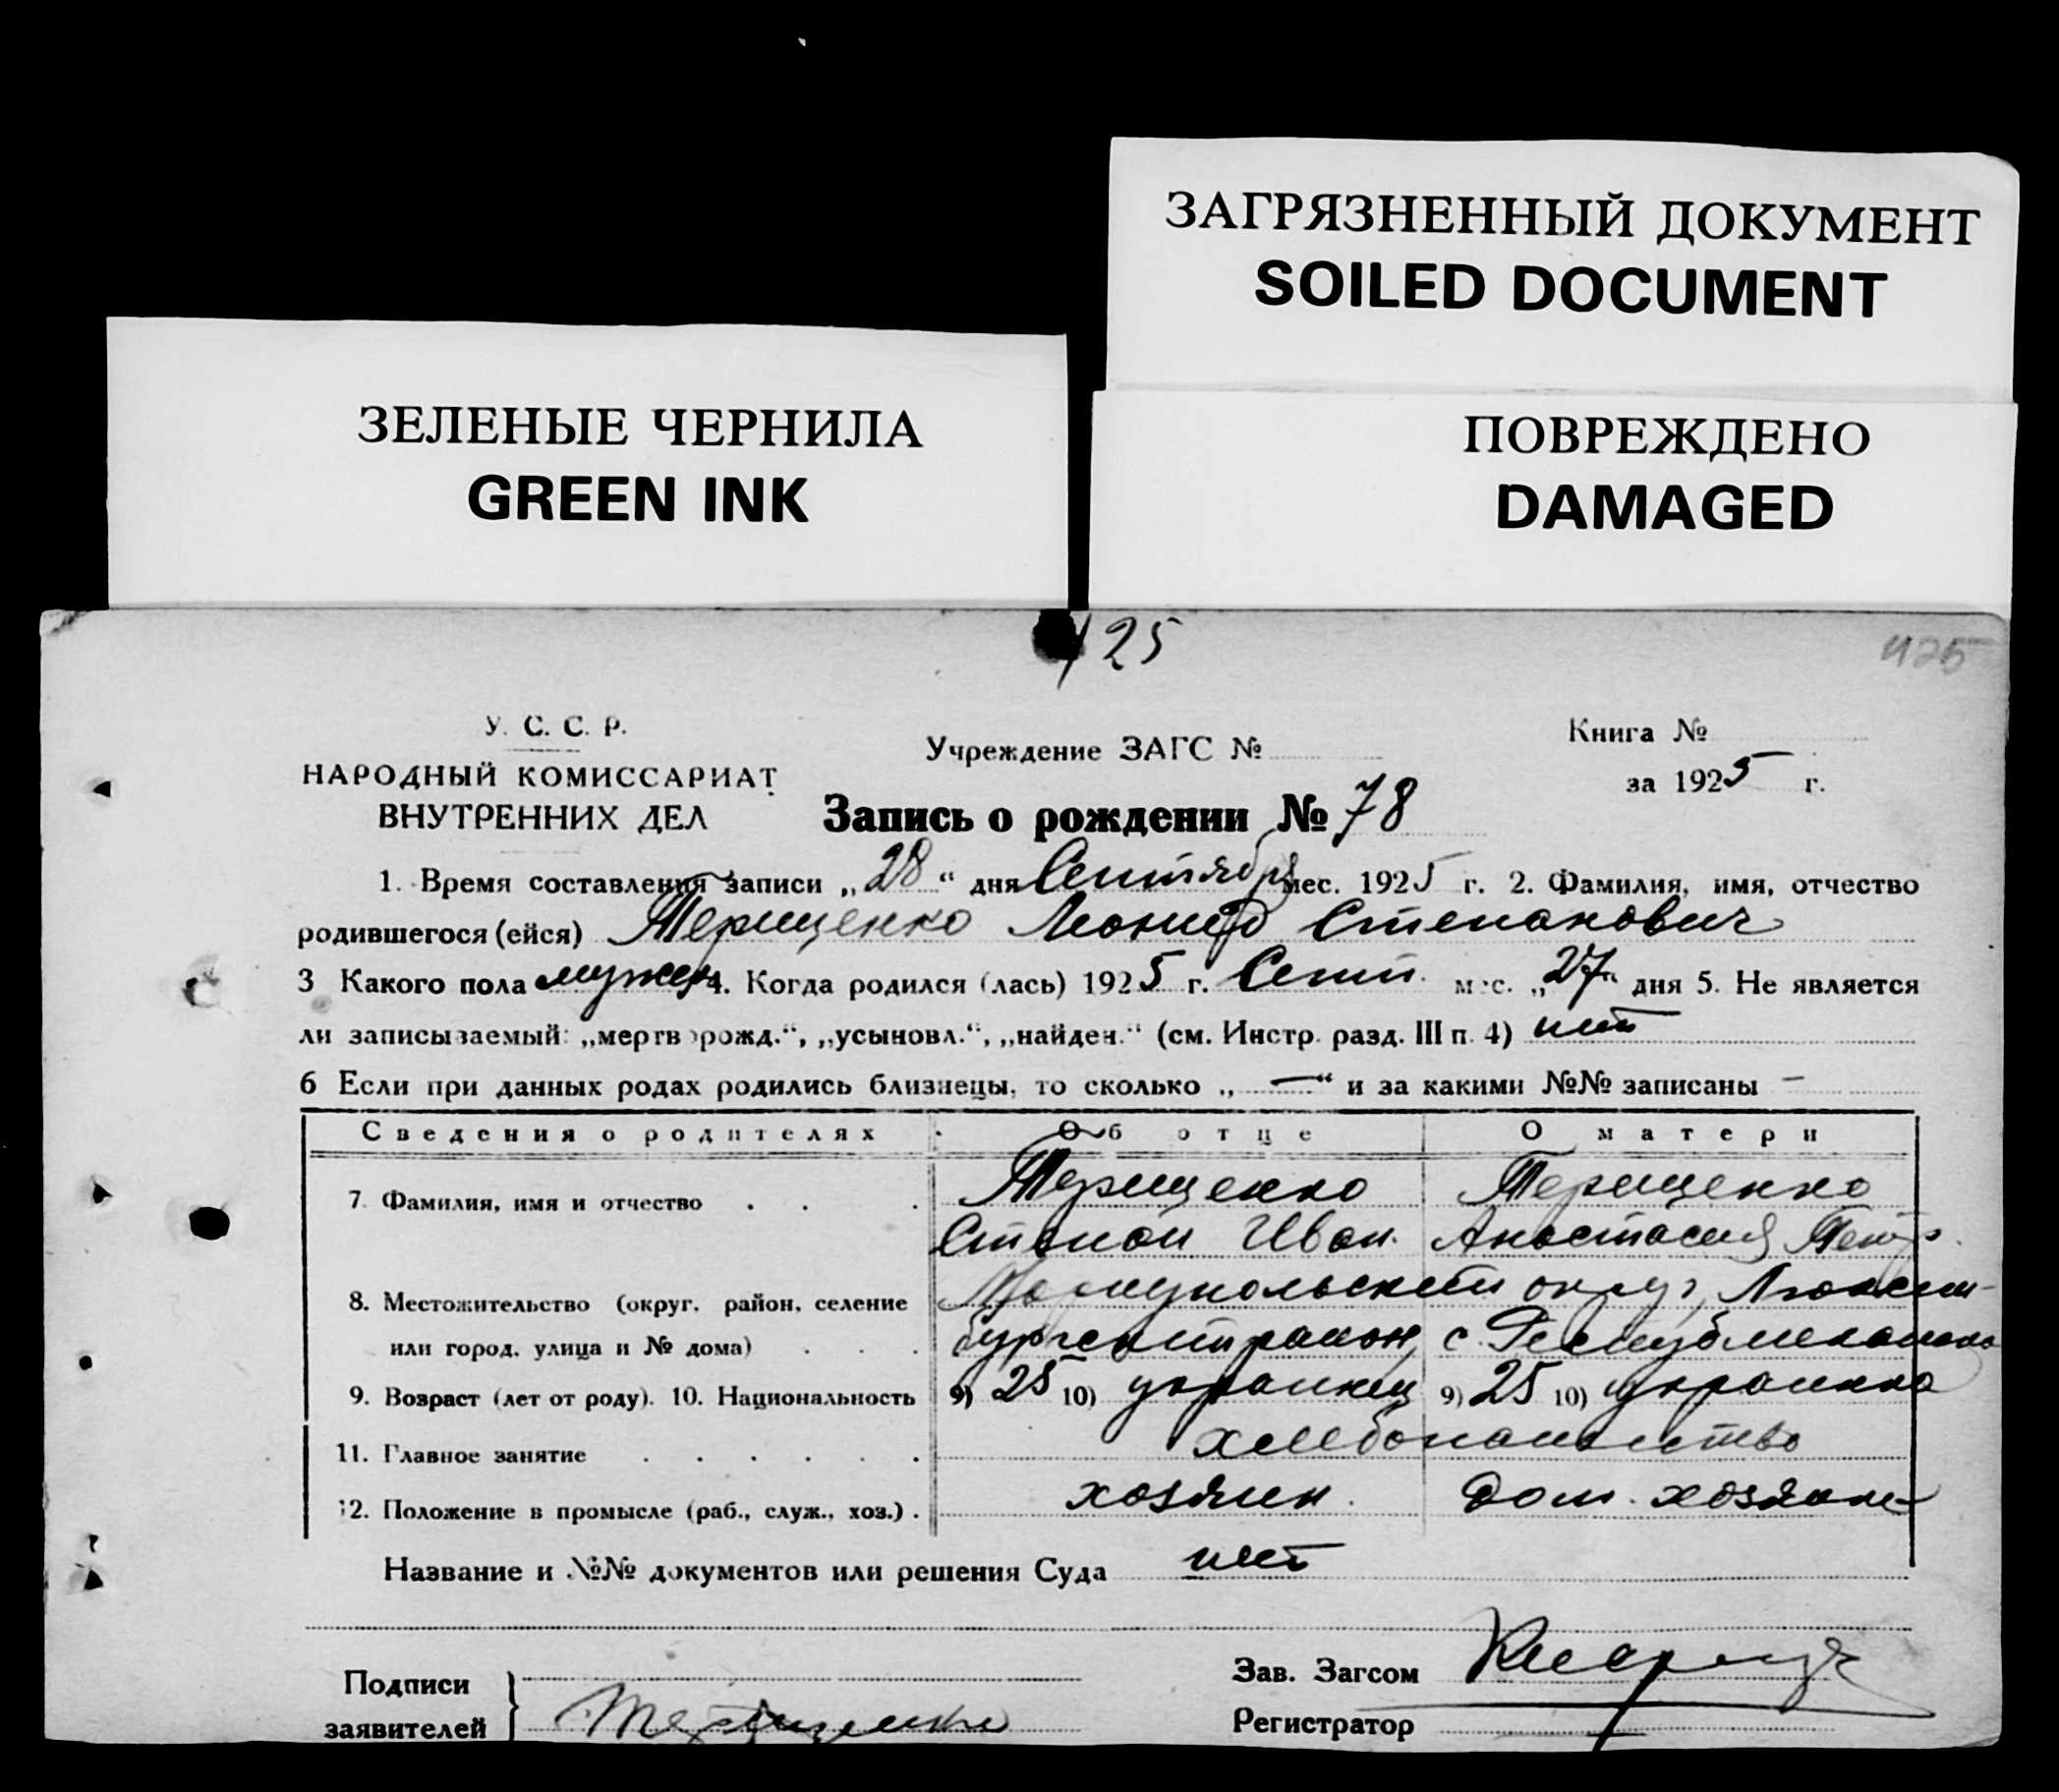 ЗАГРЯЗНЕННЫЙ ДОКУМЕНТ
SOILED DOCUMENT
ЗЕЛЕНЫЕ ЧЕРНИЛА
GREEN INK
ПОВРЕЖДЕНО
DAMAGED
425
У. С. С. Р.
НАРОДНЫЙ КОМИССАРИАТ
ВНУТРЕННИХ ДЕЛ
Учреждение ЗАГС №
Книга №
за 1925 г.
Запись о рождении № 78
1. Время составления записи „28“ дня Сентября мес. 1925 г. 2. Фамилия, имя, отчество
родившегося (ейся) Терещенко Леонид Степанович
3 Какого пола мужск 4. Когда родился (лась) 1925 г. Сент. мес. „27“ дня 5. Не является
ли записываемый: „мертворожд.“, „усыновл.“, „найден.“ (см. Инстр. разд. III п. 4) нет
6 Если при данных родах родились близнецы, то сколько „—“ и за какими №№ записаны —
Сведения о родителях Об отце О матери
7. Фамилия, имя и отчество Терещенко Терещенко
Степан Иван. Анастасия Петр.
8. Местожительство (округ, район, селение Мариупольский округ, Люксем-
или город, улица и № дома) бургский район, с.
9. Возраст (лет от роду). 10. Национальность 9) 25 10) украинец 9) 25 10) украинка
11. Главное занятие хлебопашество
12. Положение в промысле (раб., служ., хоз.) хозяин. Дом. хозяйка
Название и №№ документов или решения Суда нет
Подписи
заявителей Терещенко
Зав. Загсом
Регистратор